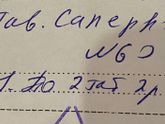 Тав. Саперн-
№63
1. По 2 таб 2р.